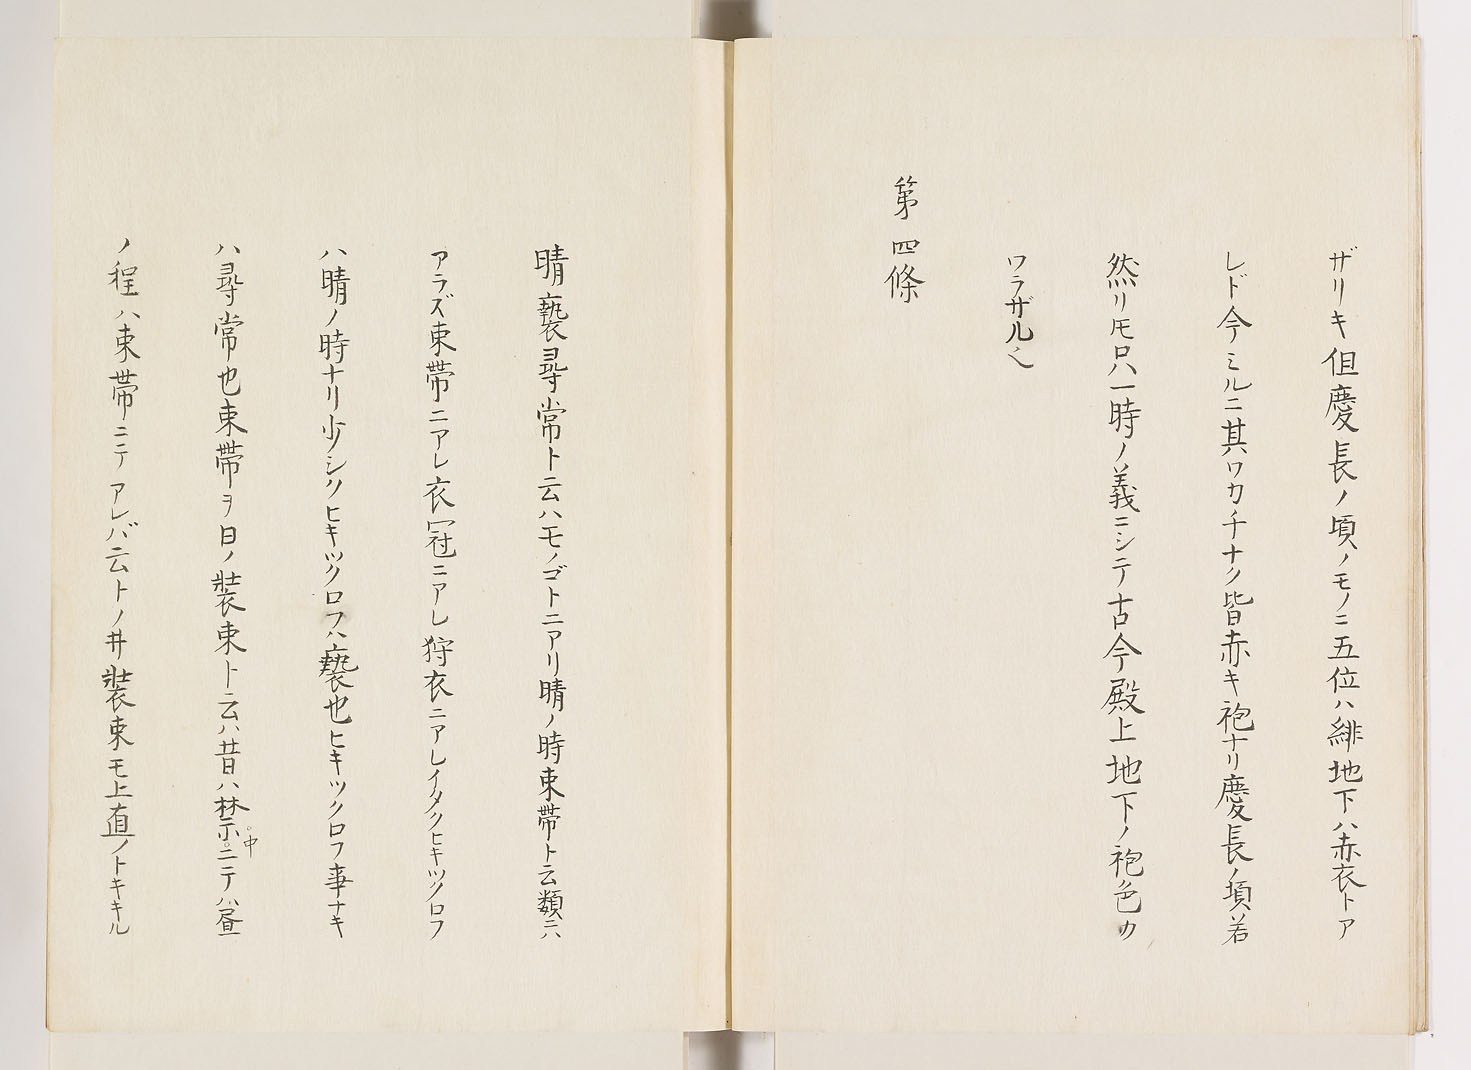 ザリキ但慶長ノ頃ノモノニ五位ハ緋地下ハ赤衣トア
レド今ミルニ其ワカチナク皆赤キ袍ナリ慶長ノ頃若
然リモ只一時ノ義ニシテ古今殿上地下ノ袍色カ
ワラザル也
第四條
晴褻尋常ト云ハモノゴトニアリ晴ノ時束帯ト云類ニハ
アラズ束帯ニアレ衣冠ニアレ狩衣ニアレイタクヒキツクロフ
ハ晴ノ時ナリ少シクヒキツクロフハ褻也ヒキツクロフ事ナキ
ハ尋常也束帯ヲ日ノ装束ト云ハ昔ハ禁中ニテハ昼
ノ程ハ束帯ニテアレバ云トノ井装束モ上直ノトキキル